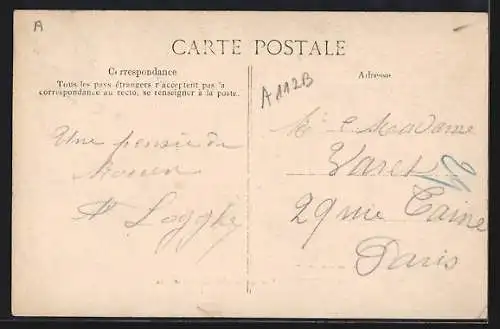 A
CARTE POSTALE
Correspondance
Tous les pays étrangers n'acceptent pas la
correspondance au recto, se renseigner à la poste.
Adresse
A112B
Une pensée de
Rouen
Logghe
Mr & Madame
Varet
29 rue Taine
Paris